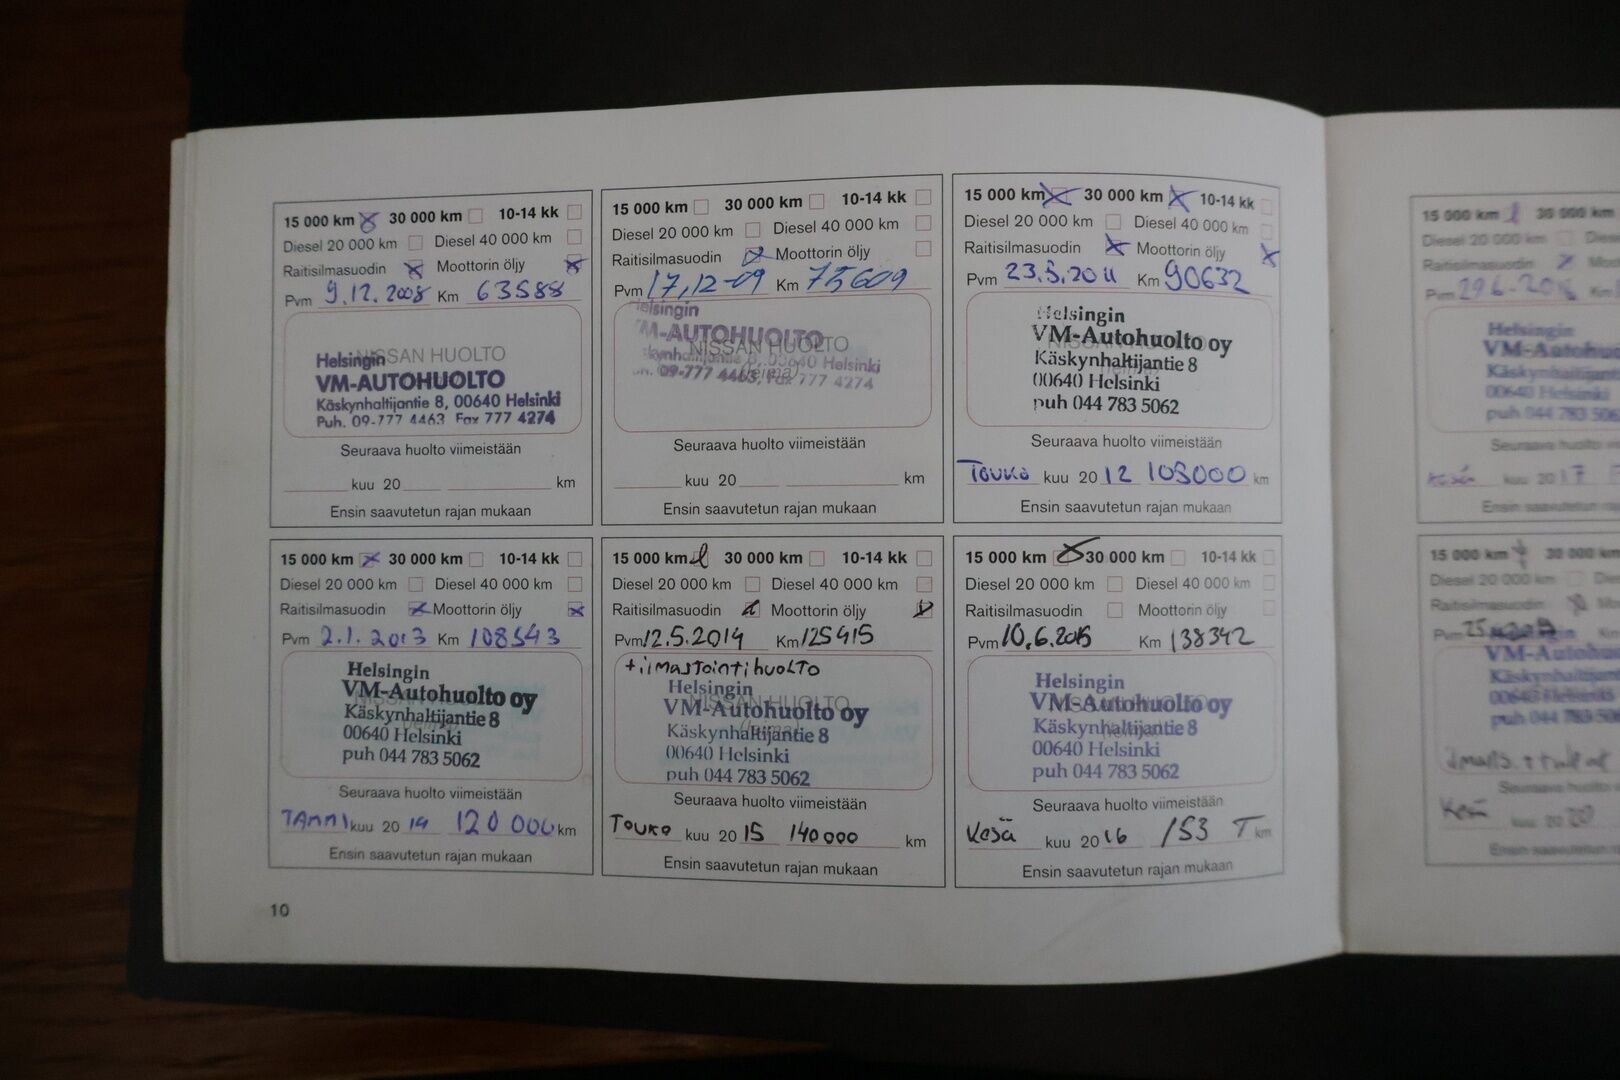 15 000 km 30 000 km 10-14 kk
Diesel 20 000 km Diesel 40 000 km
Raitisilmasuodin Moottorin öljy
Pvm 9.12.2008 Km 63588
NISSAN HUOLTO
Helsingin
VM-AUTOHUOLTO
Käskynhaltijantie 8, 00640 Helsinki
Puh. 09-777 4463 Fax 777 4274
Seuraava huolto viimeistään
kuu 20 km
Ensin saavutetun rajan mukaan
15 000 km 30 000 km 10-14 kk
Diesel 20 000 km Diesel 40 000 km
Raitisilmasuodin Moottorin öljy
Pvm 17,12-09 Km 75609
Helsingin
VM-AUTOHUOLTO
NISSAN HUOLTO
Käskynhaltijantie 8, 00640 Helsinki
(leima)
09-777 4463, Fax 777 4274
Seuraava huolto viimeistään
kuu 20 km
Ensin saavutetun rajan mukaan
15 000 km 30 000 km 10-14 kk
Diesel 20 000 km Diesel 40 000 km
Raitisilmasuodin Moottorin öljy
Pvm 23.5.2011 Km 90632
Helsingin
VM-Autohuolto oy
Käskynhaltijantie 8
00640 Helsinki
puh 044 783 5062
Seuraava huolto viimeistään
Touko kuu 2012 105000 km
Ensin saavutetun rajan mukaan
15 000 km 30 000 km 10-14 kk
Diesel 20 000 km Diesel 40 000 km
Raitisilmasuodin Moottorin öljy
Pvm 2.1.2013 Km 108543
Helsingin
VM-Autohuolto oy
Käskynhaltijantie 8
00640 Helsinki
puh 044 783 5062
Seuraava huolto viimeistään
TAMMI kuu 2014 120 000 km
Ensin saavutetun rajan mukaan
15 000 km 30 000 km 10-14 kk
Diesel 20 000 km Diesel 40 000 km
Raitisilmasuodin Moottorin öljy
Pvm 12.5.2014 Km 125415
+ilmastointihuolto
Helsingin
NISSAN HUOLTO
VM-Autohuolto oy
(leima)
Käskynhaltijantie 8
00640 Helsinki
puh 044 783 5062
Seuraava huolto viimeistään
Touko kuu 2015 140000 km
Ensin saavutetun rajan mukaan
15 000 km 30 000 km 10-14 kk
Diesel 20 000 km Diesel 40 000 km
Raitisilmasuodin Moottorin öljy
Pvm 10.6.2015 Km 138342
Helsingin
VM-Autohuolto oy
Käskynhaltijantie 8
00640 Helsinki
puh 044 783 5062
Seuraava huolto viimeistään
Kesä kuu 2016 153 T km
Ensin saavutetun rajan mukaan
10
15 000 km 30 000 km
Diesel 20 000 km
Raitisilmasuodin
Pvm 29.6-2016 Km
Helsingin
VM-Autohuo
Käskynhaltijant
00640 Helsinki
puh 044 783 506
Seuraava huolto
Kesä kuu 2017
Ensin saavutetun
15 000 km 30 000
Diesel 20 000 km
Raitisilmasuodin
Pvm
Helsingin
VM-Autohuo
Käskynhaltijan
00640 Helsinki
puh 044 783 50
Seuraava huolto
Kesä kuu 2020
Ensin saavutetun